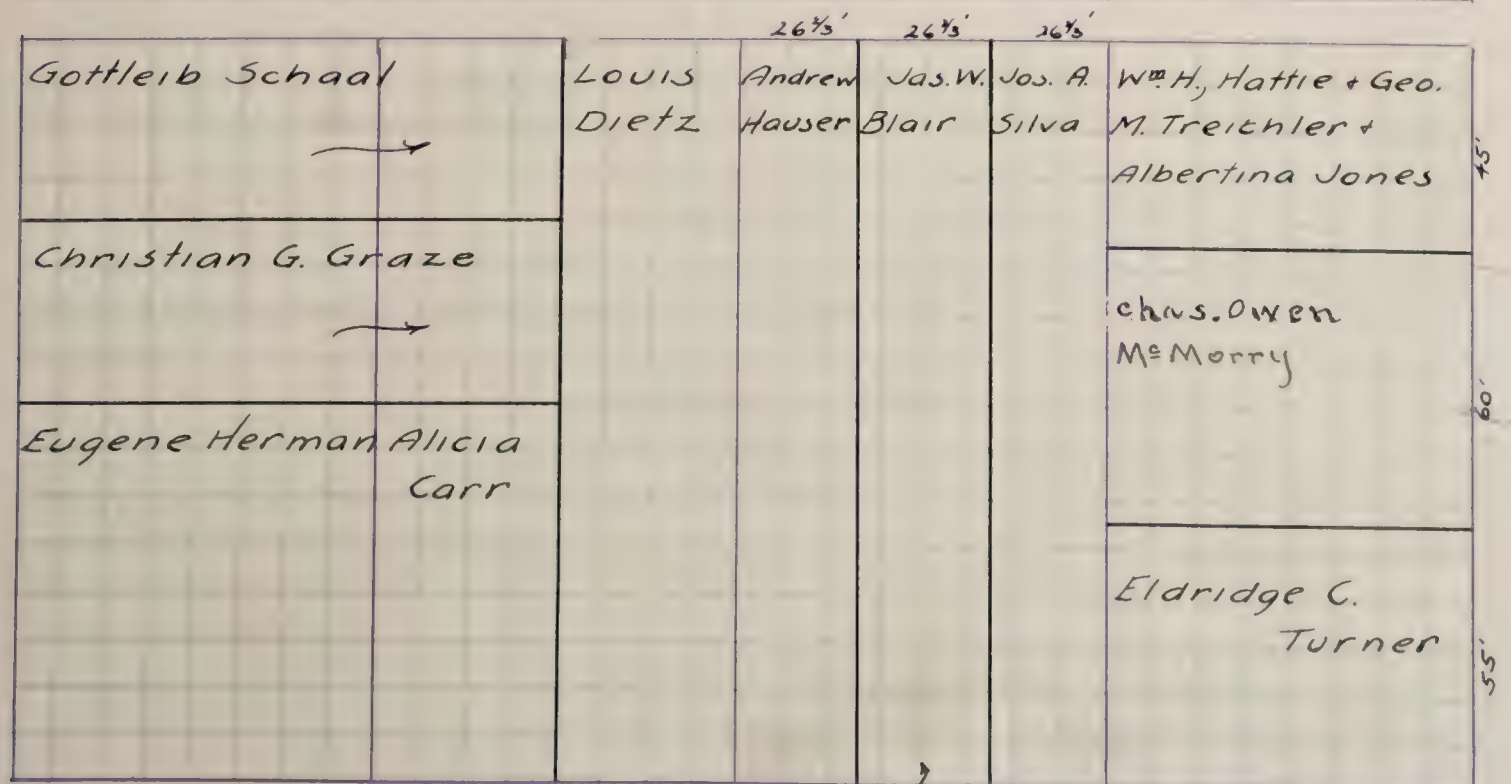 26⅔' 26⅔' 26⅔'
Gottleib Schaal
Christian G. Graze
Eugene Herman
Alicia
Carr
Louis
Dietz
Andrew
Hauser
Jas. W.
Blair
Jos. A.
Silva
Wm. H., Hattie + Geo.
M. Treichler +
Albertina Jones
45'
Chas. Owen
McMorry
60'
Eldridge C.
Turner
55'